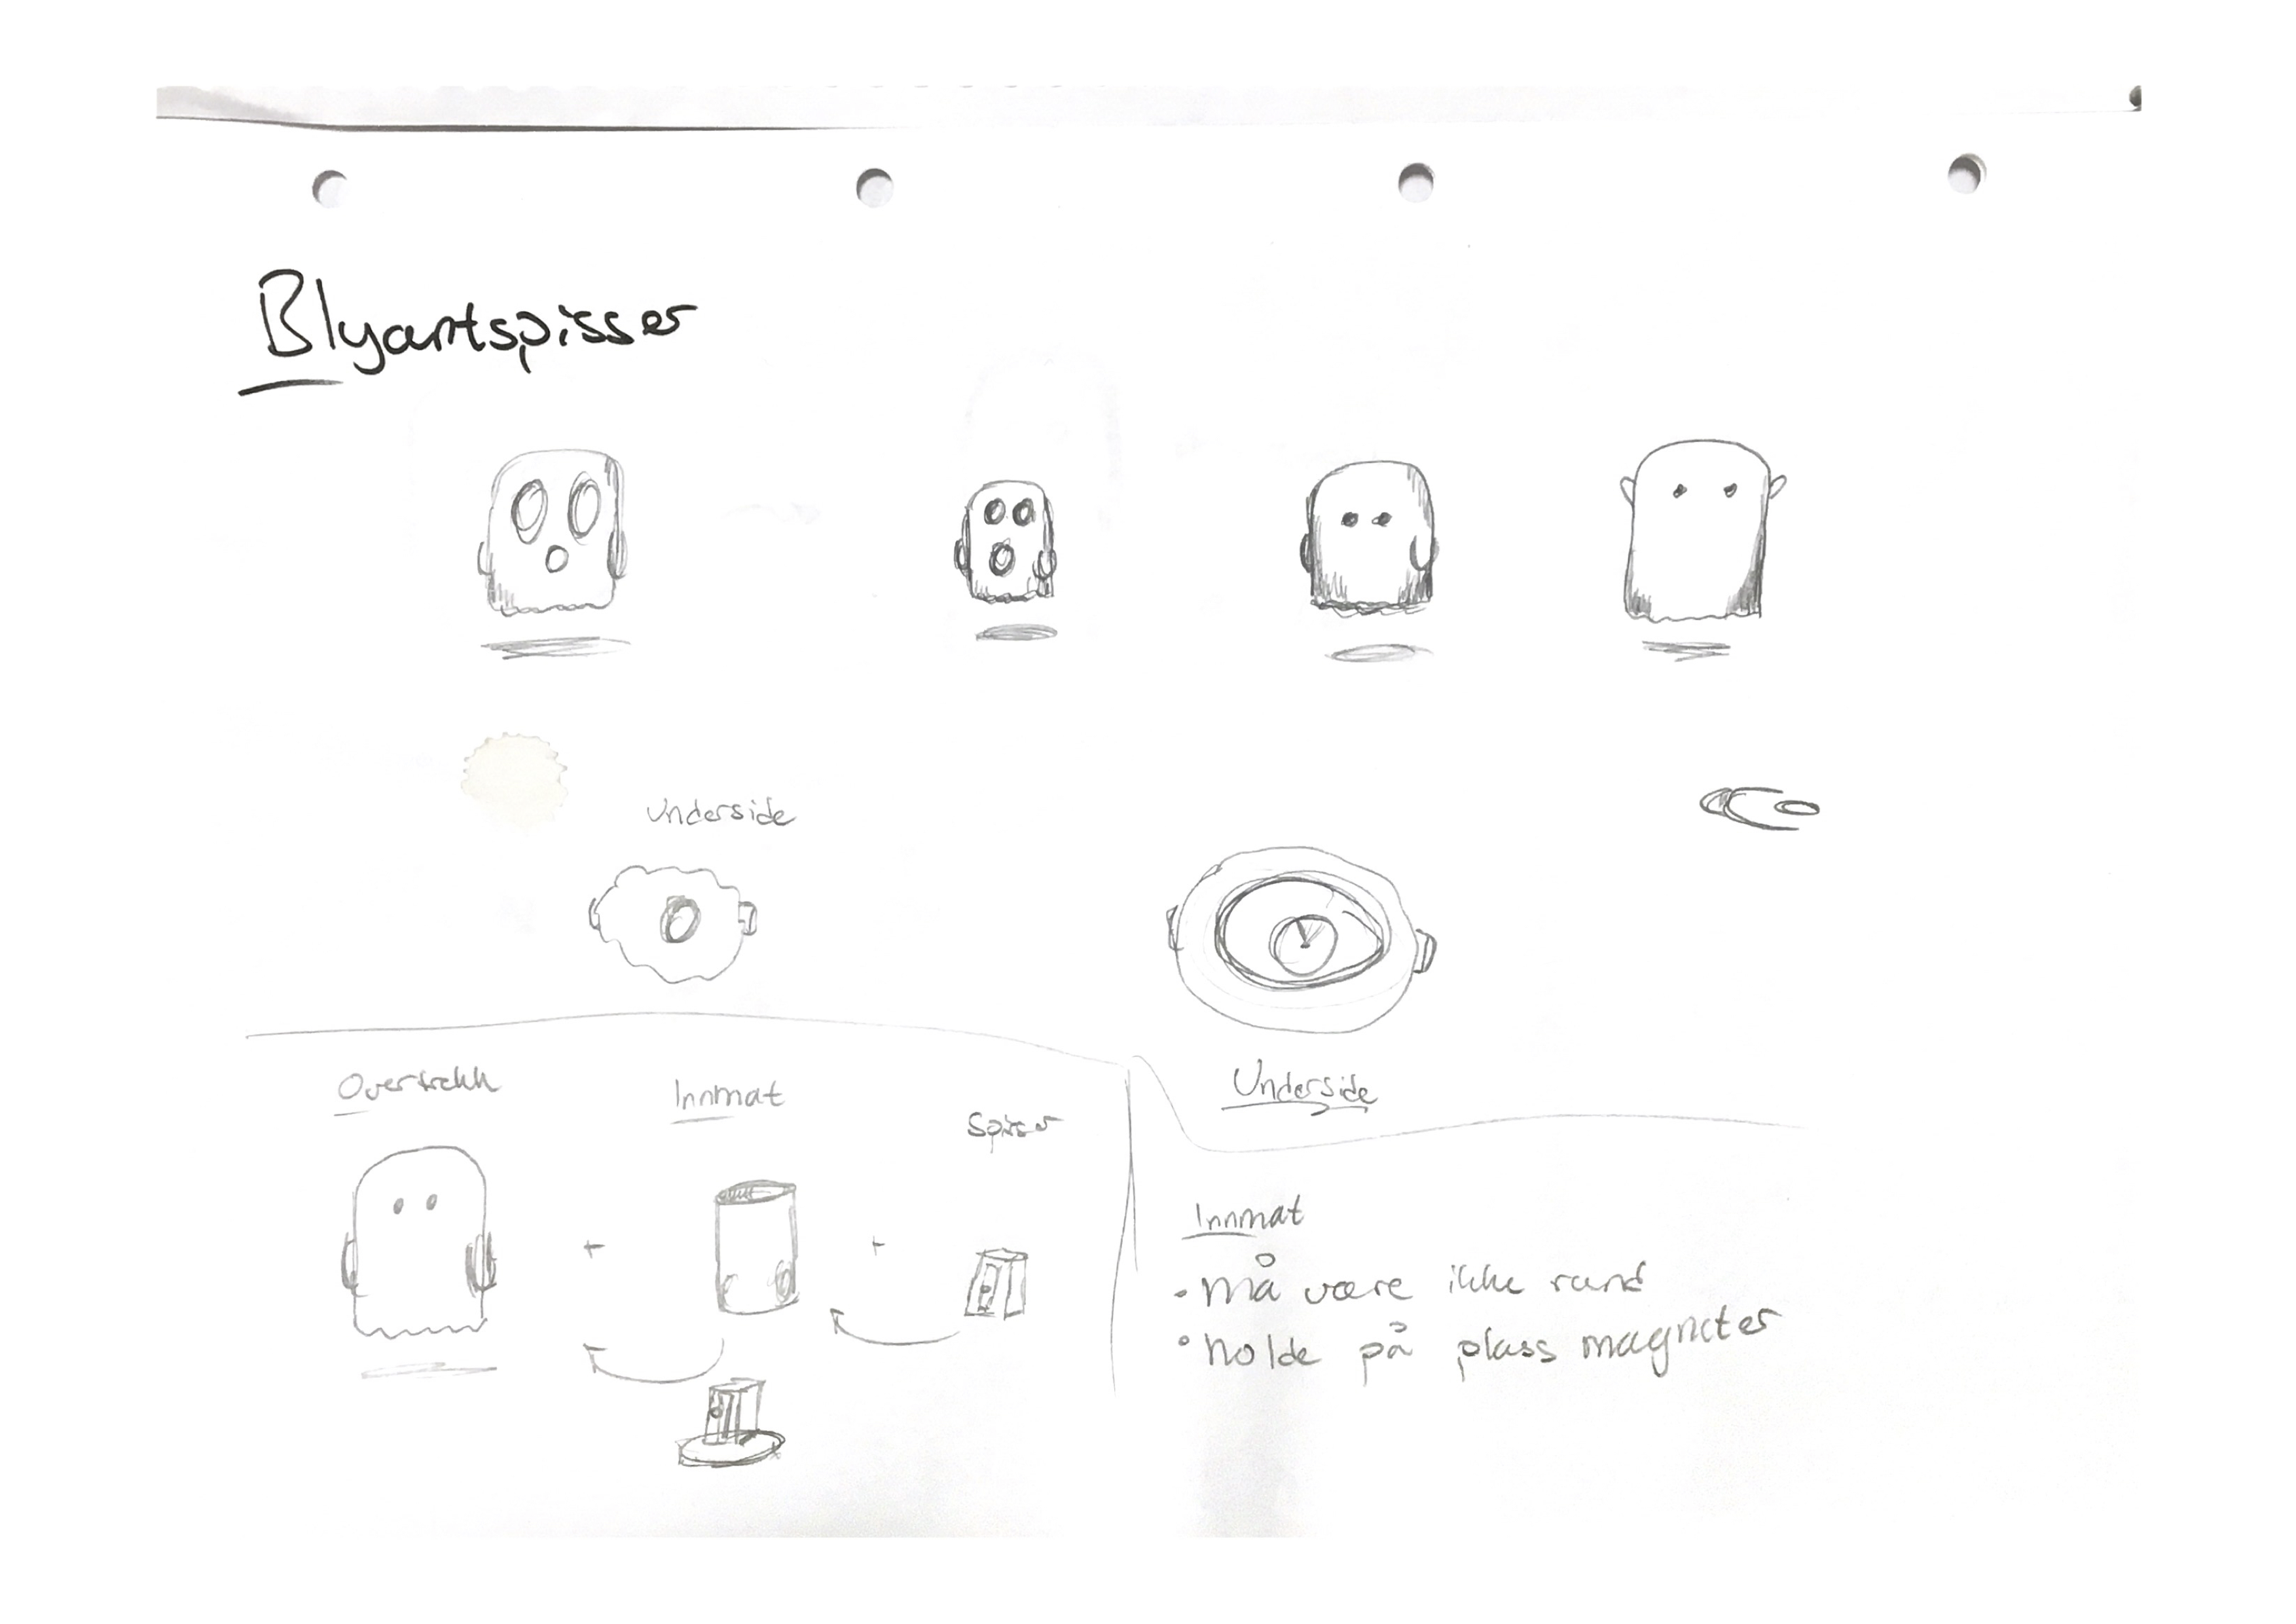 Blyantspisser
Underside
Underside
Overtrekk
Innmat
Spisser
Innmat
• Må være ikke rund
• holde på plass magneter